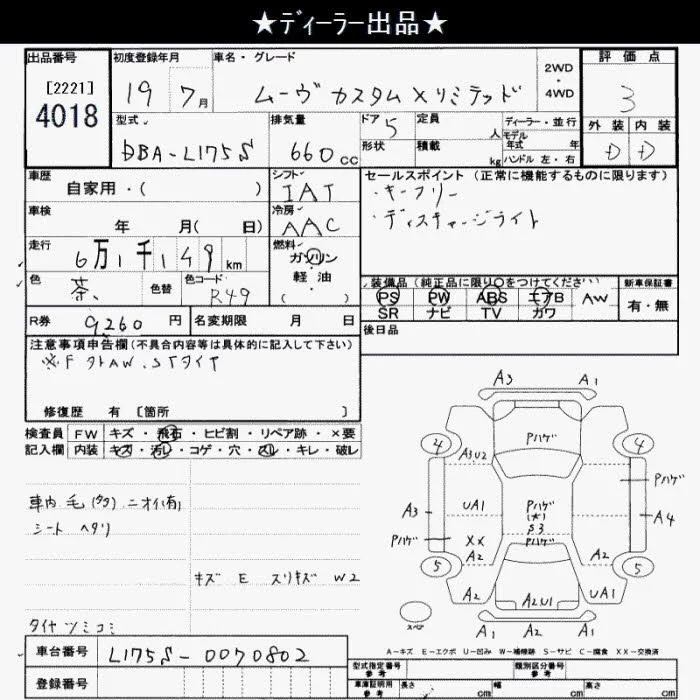 ★ディーラー出品★
出品番号 初度登録年月 車名・グレード 2WD・4WD 評価点
[2221] 4018 19 7月 ムーヴ カスタム Xリミテッド 3
型式 排気量 ドア 定員 人 ディーラー・並行 外装 内装
モデル年式 年
DBA-L175S 660cc 5 形状 積載 kg ハンドル 左・右 D D
車歴 シフト セールスポイント（正常に機能するものに限ります）
自家用・( ) IAT ・キーフリー
車検 冷房 ・ディスチャージライト
年 月( 日) AAC
走行 燃料
6万1千149km ガソリン
色 色替 色コード 軽・油 装備品（純正品に限り○をつけてください） 新車保証書
茶、 R49 ( ) PS PW ABS エアB AW 有・無
SR ナビ TV カワ
R券 9260円 名変期限 月 日 後日品
注意事項申告欄（不具合内容等は具体的に記入して下さい）
※F タトAW.STタイヤ
修復歴 有 [箇所 ]
検査員 FW キズ・飛石・ヒビ割・リペア跡・×要
記入欄 内装 キズ・汚レ・コゲ・穴・スレ・キレ・破レ
A3 A1
4 Pハゲ 4
A3U2 Pハゲ
車内 毛(多) ニオイ(有) A3 UA1 Pハゲ A4
シート ヘタリ (大)
S3
Pハゲ XX Pハゲ
A2 A2
5 5
キズ E スリキズ W2 A2 A2U1 UA1
スペア A1 A2 A1
タイヤ ツミコミ
A-キズ E-エクボ U-凹み W-補修跡 S-サビ C-腐食 XX-交換済
車台番号 L175S-0070802
型式指定番号 参考 類別区分番号 参考
登録番号 車庫証明用 参考 長さ cm 幅 cm 高さ cm